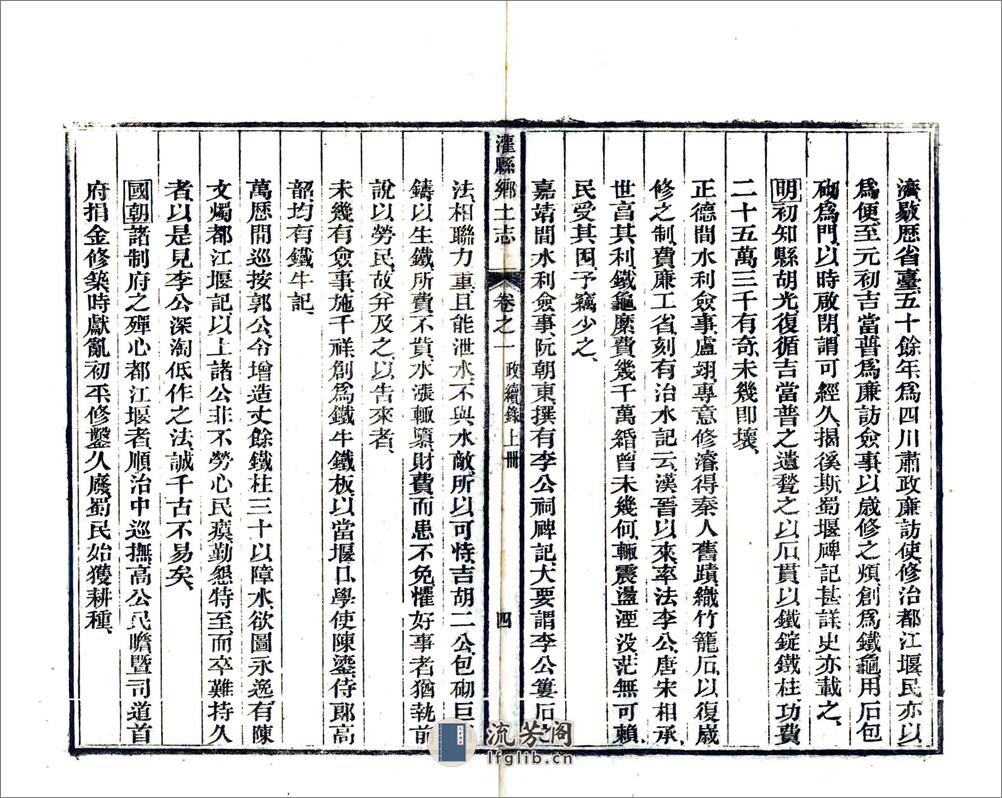 濟歇歷省臺五十餘年爲四川肅政廉訪使修治都江堰民亦以
爲便至元初吉當普爲廉訪僉事以歲修之煩創爲鐵龜用石包
砌爲門以時啟閉謂可經久揭徯斯蜀堰碑記甚詳史亦載之
明初知縣胡光復循吉當普之遺甃之以石貫以鐵錠鐵柱功費
二十五萬三千有奇未幾即壞
正德間水利僉事盧翊專意修濬得秦人舊蹟織竹籠石以復歲
修之制費廉工省刻有治水記云漢晉以來率法李公唐宋相承
世享其利鐵龜縻費幾千萬緡曾未幾何輒震盪湮没茫無可賴
民受其困予竊少之
嘉靖間水利僉事阮朝東撰有李公祠碑記大要謂李公簍石
灌縣鄉土志 卷之一 政績錄上冊 四
法相聯力重且能泄水不與水敵所以可恃吉胡二公包砌巨
鑄以生鐵所費不貲水漲輒隳財費而患不免懼好事者猶執前
說以勞民故弁及之以告來者
未幾有僉事施千祥創爲鐵牛鐵板以當堰口學使陳鎏侍郎高
韶均有鐵牛記
萬歷間巡按郭公令增造丈餘鐵柱三十以障水欲圖永逸有陳
文燭都江堰記以上諸公非不勞心民瘼勤懇特至而卒難持久
者以是見李公深淘低作之法誠千古不易矣
國朝諸制府之殫心都江堰者順治中巡撫高公民瞻暨司道首
府捐金修築時獻亂初平修鑿久廢蜀民始獲耕種
流芳阁
lfglib.cn